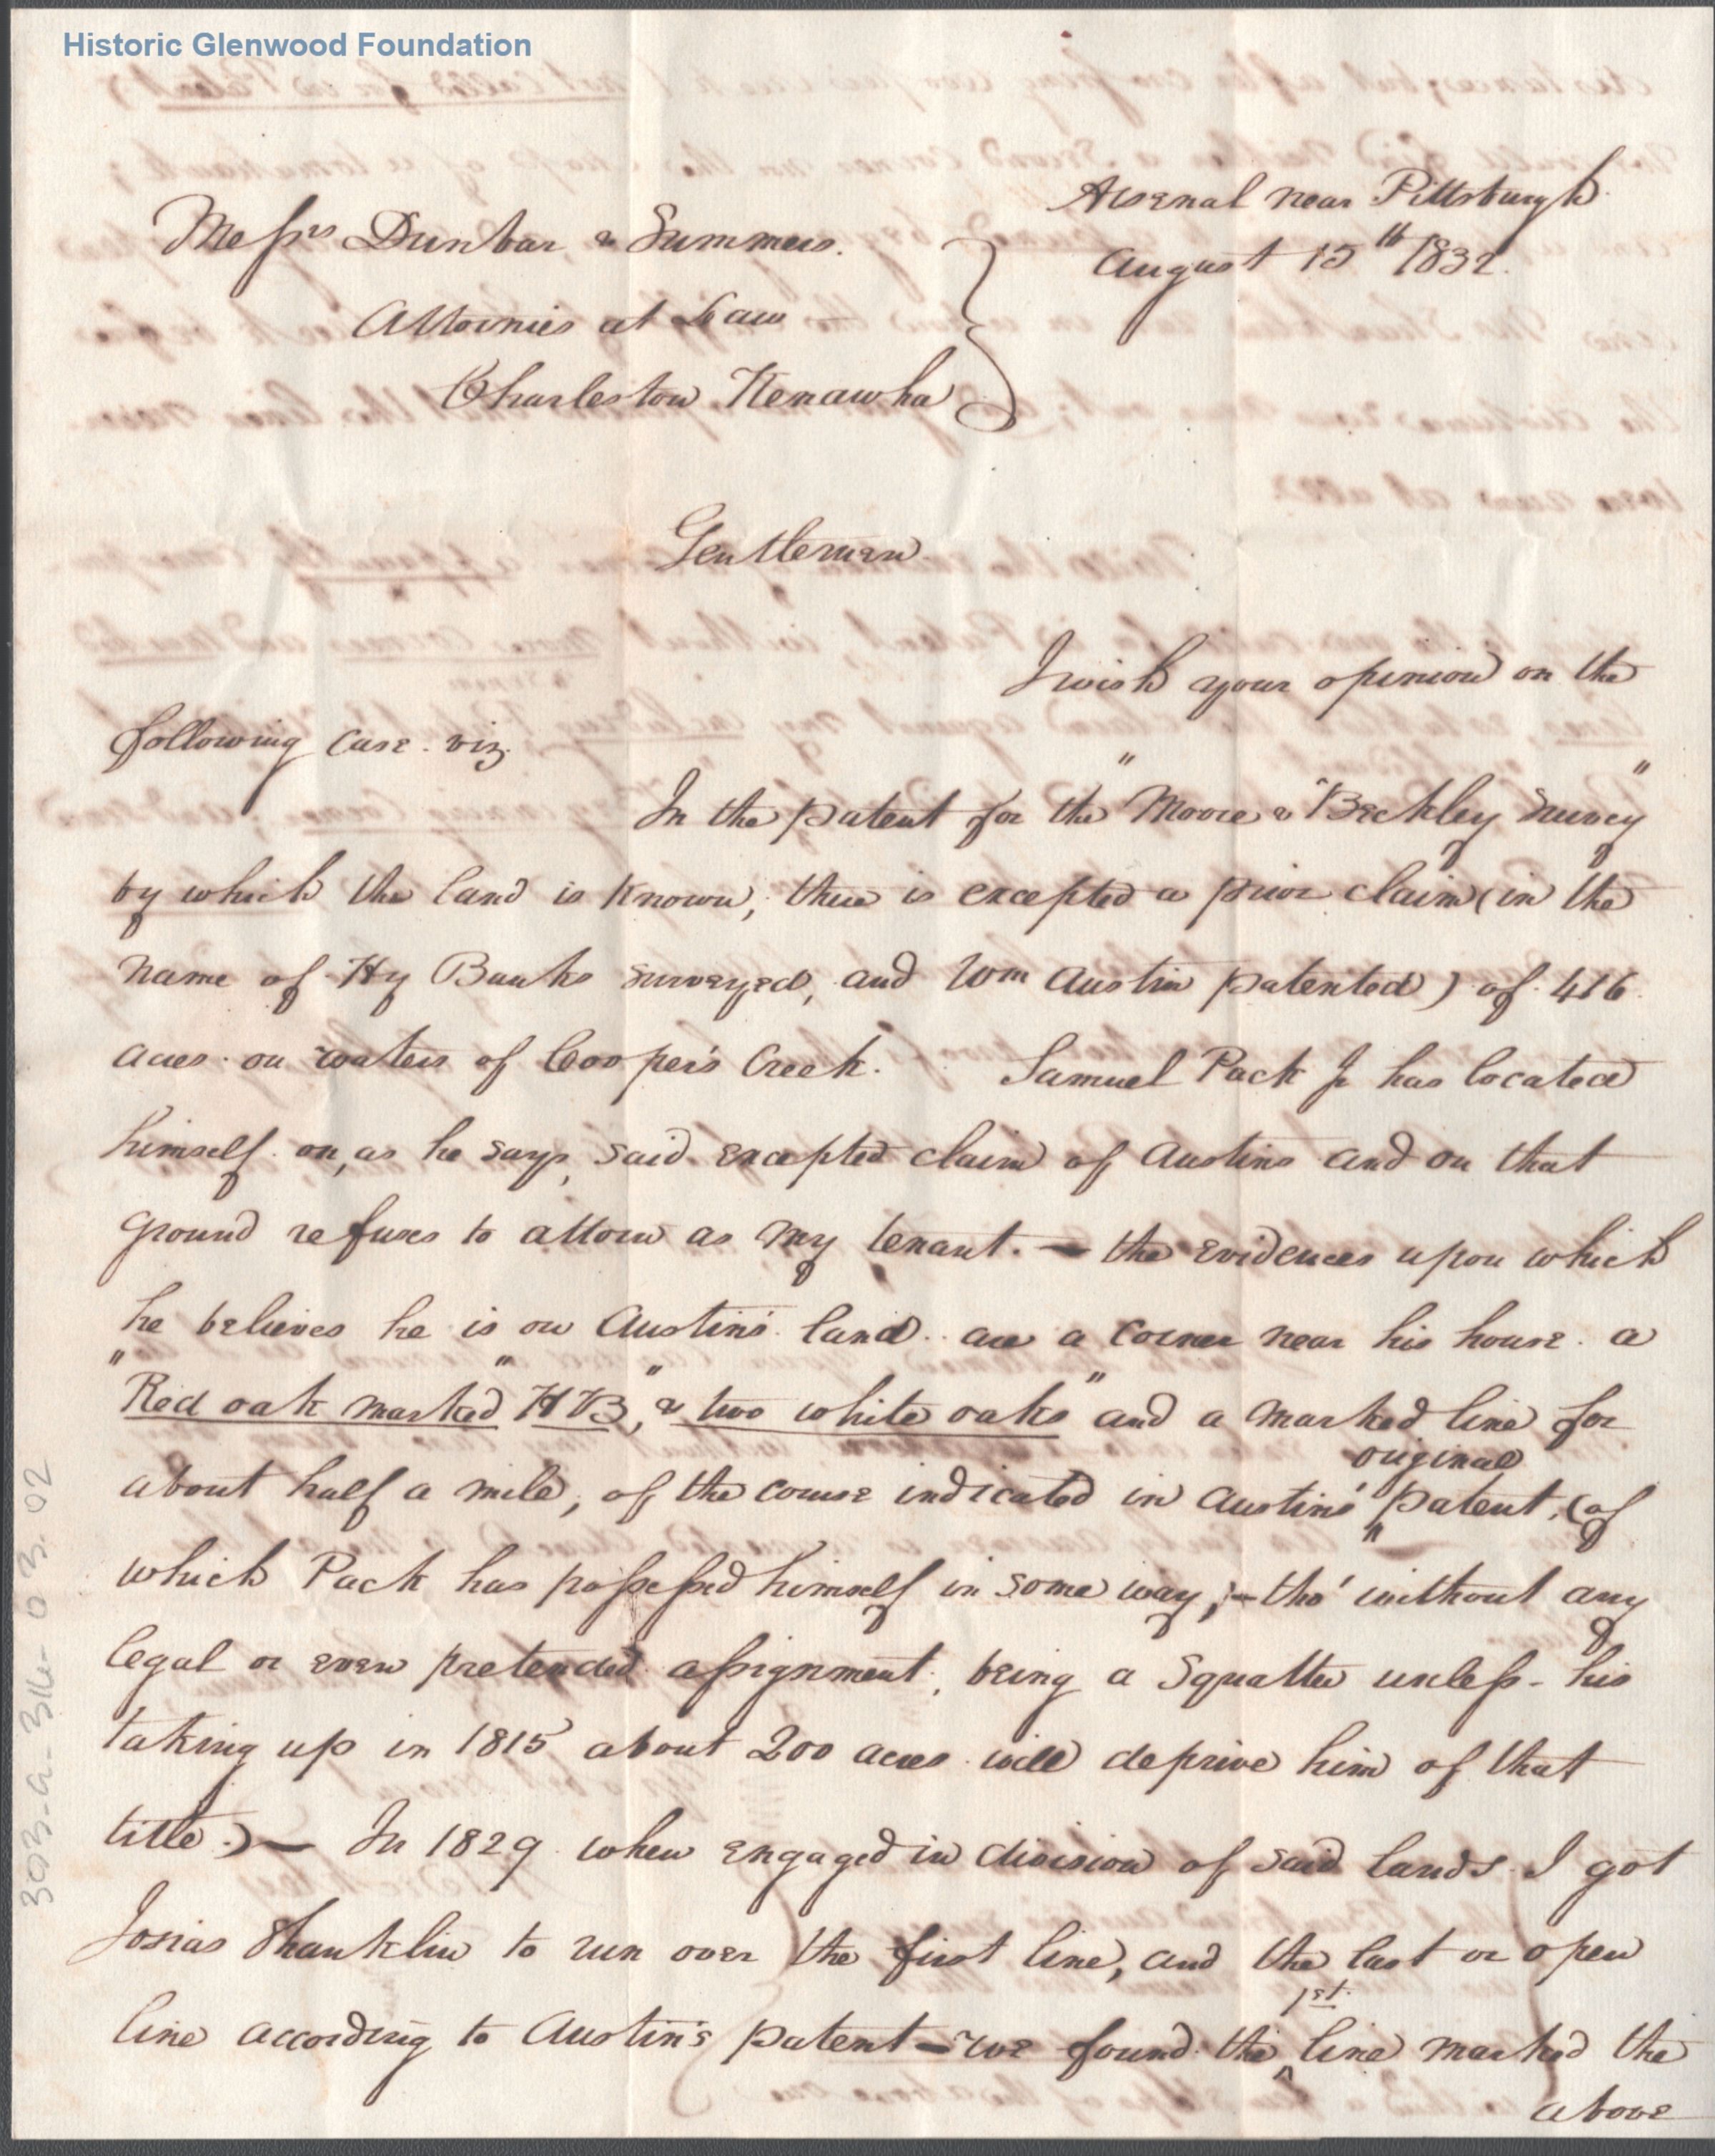 Historic Glenwood Foundation
Arsenal near Pittsburgh
August 15th 1832.
Messrs Dunbar & Summers.
Attornies at Law
Charleston Kenawha
Gentlemen
I wish your opinion on the
following case. viz.
In the patent for the "Moore & Beckley Survey"
by which the land is known, there is excepted a prior claim (in the
name of Hy Banks surveyed, and Wm Austin patented) of 416
acres on waters of Cooper's Creek. Samuel Pack Jr has located
himself on, as he says, said excepted claim of Austins and on that
ground refuses to attorn as my tenant. — the evidences upon which
he believes he is on Austin's land are a corner near his house a
"Red oak marked "HB", & two white oaks" and a marked line for
about half a mile, of the course indicated in Austins' original patent, (of
which Pack has possessed himself in some way; - tho' without any
legal or even pretended assignment, being a Squatter unless - his
taking up in 1815 about 200 acres will deprive him of that
title.) — In 1829 when engaged in division of said lands I got
Josias Shanklin to run over the first line, and the last or open
line according to Austin's patent — we found the 1st. line marked the
above
303-a-316-03.02